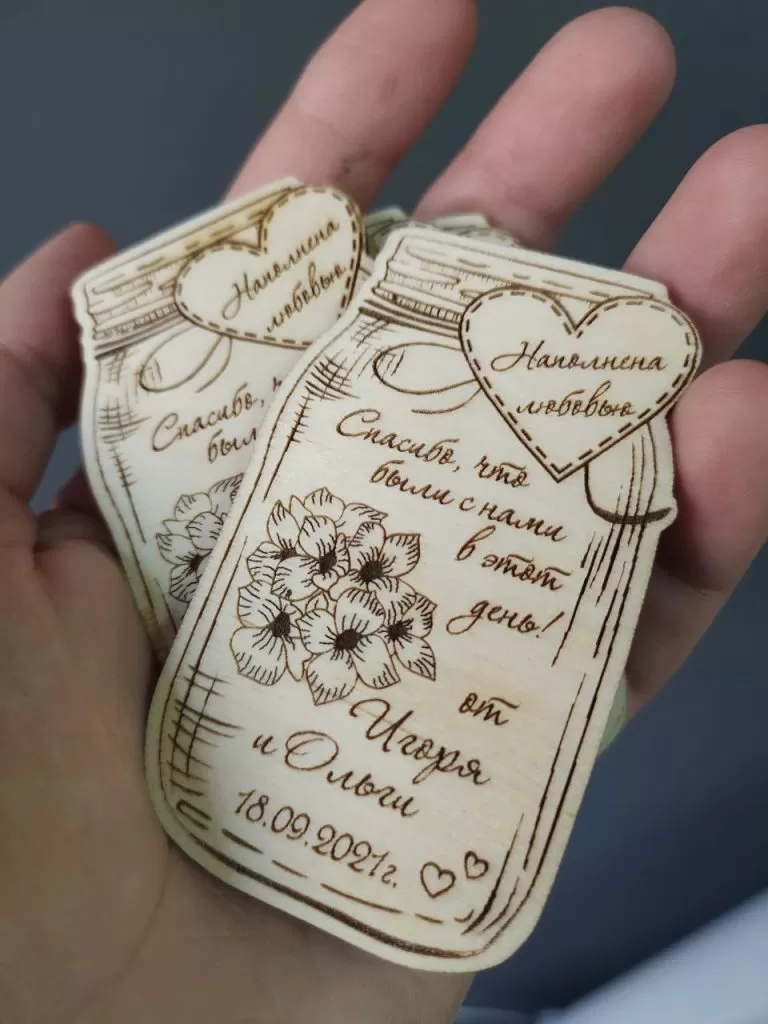 Наполнена
любовью
Спасибо, ч
был
Наполнена
любовью
Спасибо, что
были с нами
в этот
день!
от
Игоря
и Ольги
18.09.2021г.